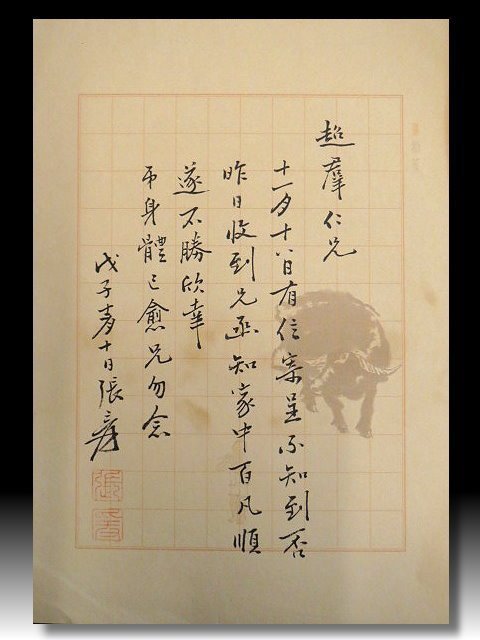 超羣仁兄
十一月十八日有信寄呈不知到否
昨日收到兄函知家中百凡順
遂不勝欣幸
弟身體已愈兄勿念
戊子十日張爰
張爰